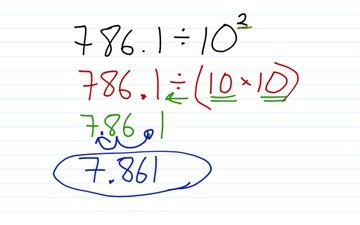 786.1÷10²
786.1÷(10×10)
7.86.1
7.861